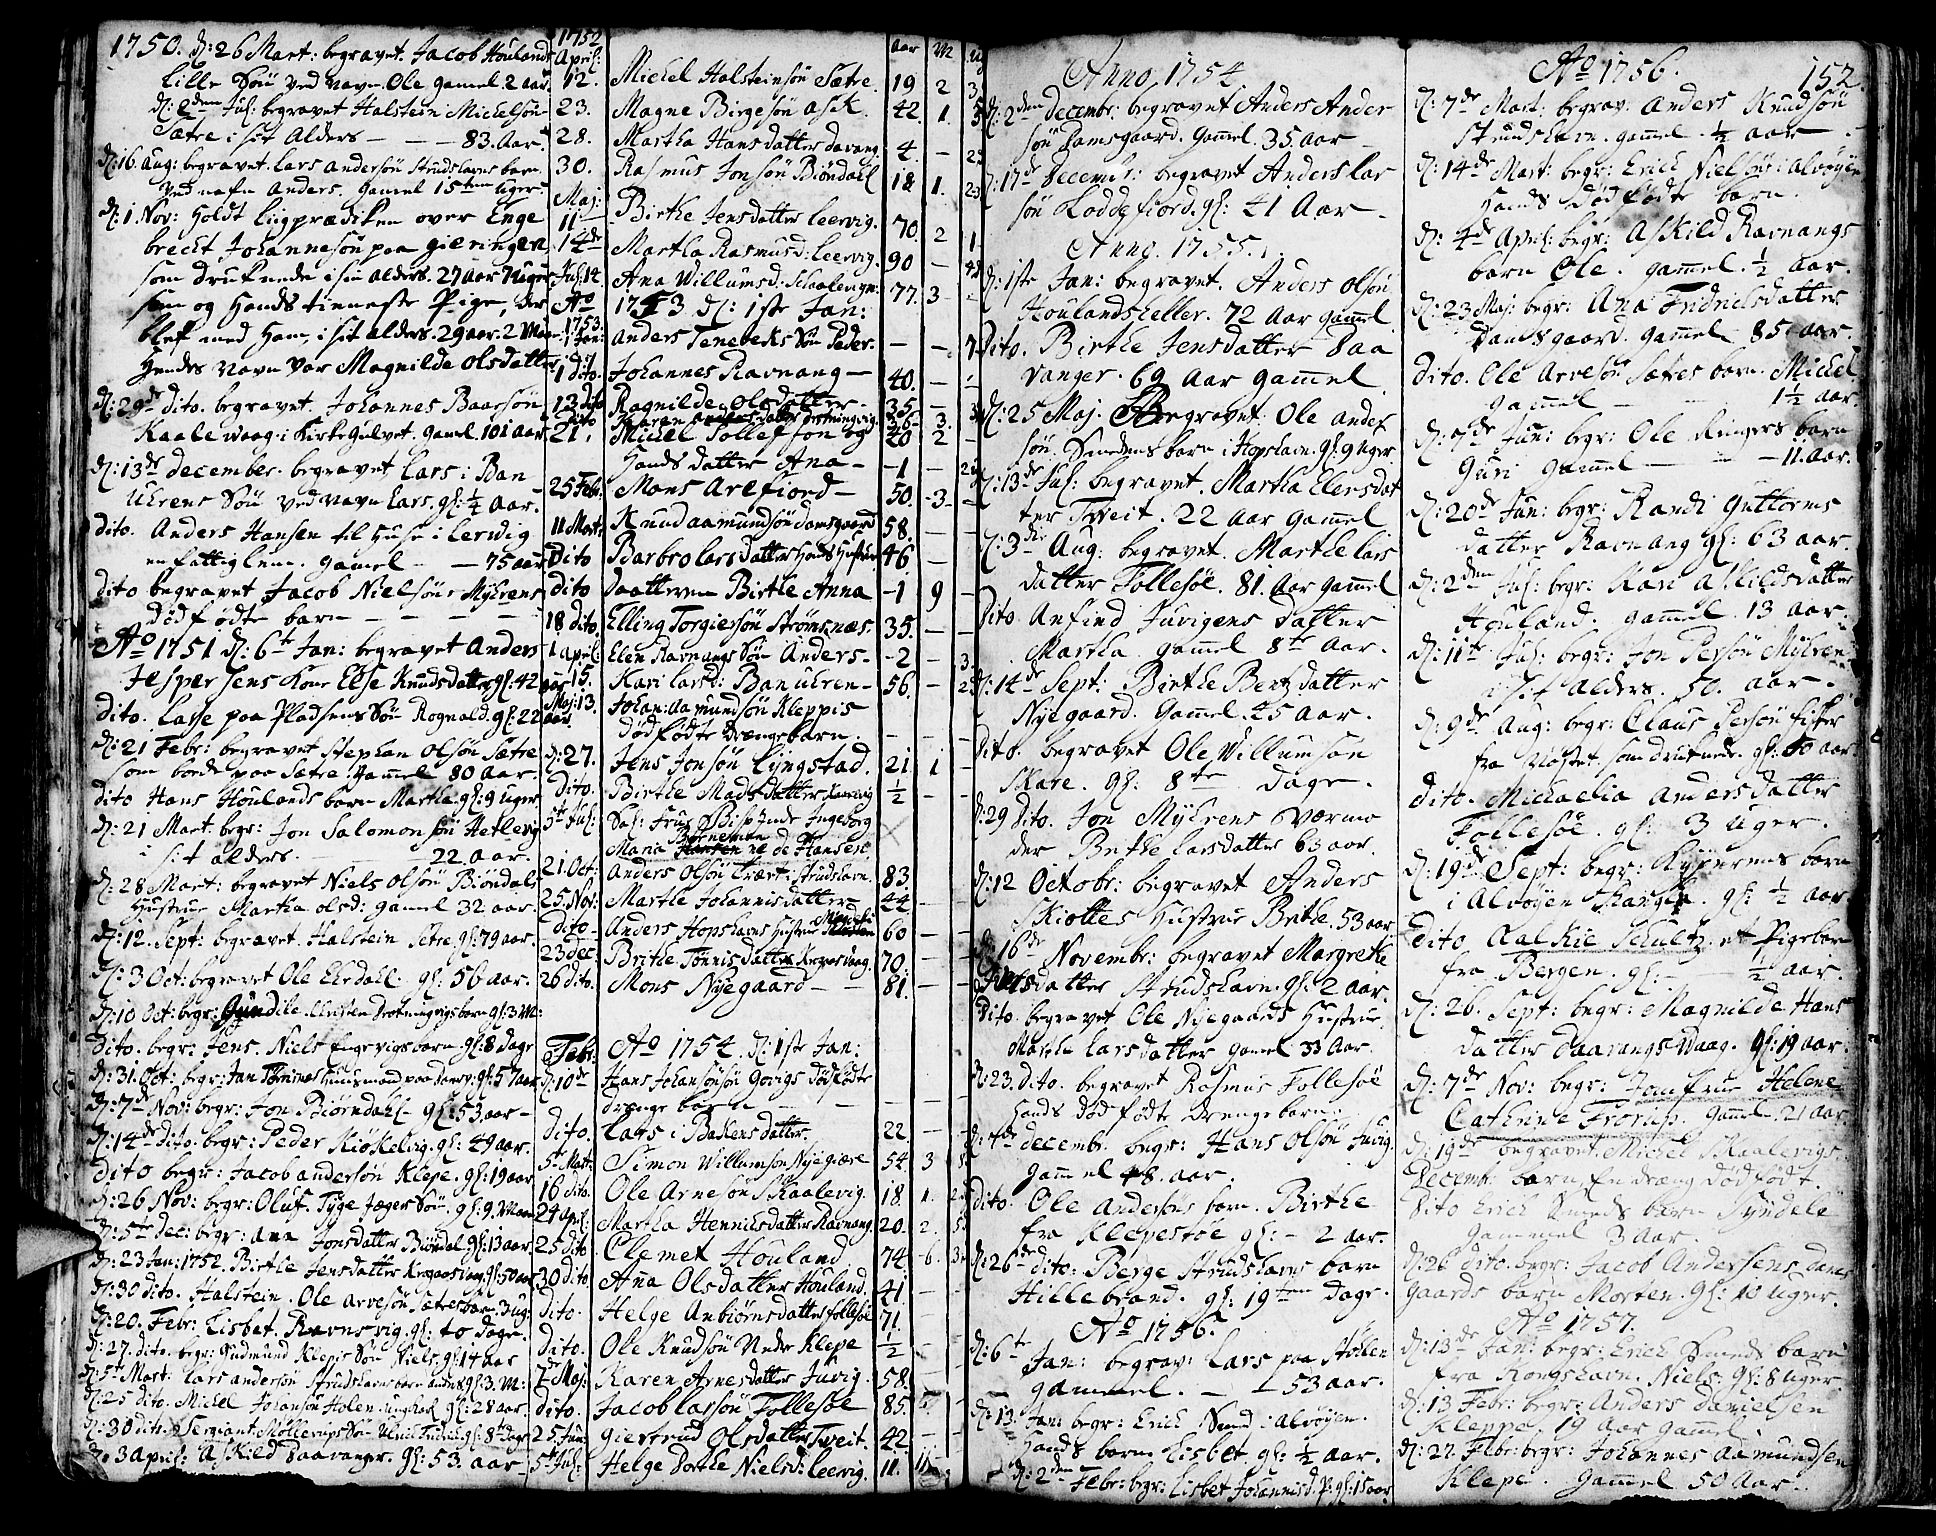 1750. D: 26 Mart: begravet Jacob Houlands
lille Søn ved navn Ole gamel 2 aar
D: 2den Jul: begravet Halstein Mickelsøn
Sætre i sit Alders — — 83. Aar.
D: 16. Aug: begravet Lars Andersøn Strudshavns barn
ved nafn Anders. gamel 15ten uger
D: 1. Nov: holdt liigprædiken over Enge
brecht Johannesøn paa Gieringen
som druknede i sin alders. 27 aar 7 uger
som og hands tienneste Pige, der
blef med ham, i sit alders. 29 aar. 2 Maan
hendes navn var Magnilde Olsdatter
D: 29de dito. begravet. Johannes Baarsøn
Kaalewaag i Kirke Gulvet. gamel 101 aar
D: 13de december begravet Lars i Ban
Uhrens Søn ved navn Lars. gl: ¼ Aar.
dito. Anders Hansen til Huse i Lerwig
en fattiglem. gamel — — 75 aar
dito begravet Jacob Nielsøn Myhrens
dødfødte barn — — — —
Ao 1751 D: 6te Jan: begravet Anders
Jespersens Kone Else Knudsdatter gl: 42 aar
dito. Lasse paa Pladsens Søn Rognald. gl: 22 aar
D: 21 Febr: begravet Stephen Olsøn Sætre
som boede paa Sætre. gamel 80 Aar.
dito Hans Houlands barn Marthe. gl: 9 uger
D: 21 Mart: begr: Jon Salomonsøn Hetlevig
i sit alders. — — 22 aar.
D: 28 Mart: begravet Niels Olsøn Biøndals
Hustrue Martha Olsd: gamel 32 aar
D: 12. Sept: begravet. Halstein Sætre gl: 79 aar.
D: 3 Oct: begravet Ole Ekrdahl. gl: 56 aar.
D: 10 Oct: begr: Gundele Christen Drotningvigs barn gl: 3 M:
dito. begr: Jens. Niels Engevigs barn. gl: 8 dage
D: 31. Oct: begr: Jan Tørnimes huusmand paa Damsg: gl: 57 aar
D: 7de Nov: begr: Jon Biørndahl — gl: 53. aar —
D: 14de dito. begr: Peder Kiøkelvig. gl: 49 aar.
dito begr: Jacob Andersøn Klepe. gl: 19 aar
D: 26 Nov: begr: Oluf Tyge Jægers Søn. gl: 9. Maan
D: 5te Dec: begr: Ana Jonsdatter Biøndal. gl: 13 aar
D: 23 Jan: 1752. Birthe Jensdatter gl: 50 aar
D: 30 dito. Halstein. Ole Arvesøn Sætres barn 3 ug:
D: 20. Febr: Lisbet. Ravnsvig. gl: 10 dage.
D: 27. dito. begr: Gudmund Klepis Søn Niels. gl: 14 aar
D: 5te Mart: Lars Andersøn Strudshavns barn Anders gl: 3. M:
D: 25 dito. Mickel Johansøn Holen gl: 28 aar.
D: 30 dito. Sergiant Møllerups Søn Ulric Fridric gl: 8te dage
D: 3 April: Askild Daavanger. gl: 53. aar
1752
April: aar M ug
12. Mickel Halsteinsøn Sætre. 19 2 3
23. Magne Birgesøn Ask. 42. 1. 3
28. Martha Hansdatter Davang 4. — 23
30. Rasmus Jonsøn Biøndahl 18 1. 23
Maj:
11 Birthe Jensdatter Leervig. 70. 2 1
14de Martha Rasmusd: Leervig. 90 —
Jul: 14 Ana Willumsd: Schaalevigen: 77. 3 —
Ao 1753 D: 1ste Jan:
1753.
1 Jan: Anders Tenebeks Søn Peder. — —
1 dito. Johannes Ravnang — 40. —
13 dito Ragnilde Olsdatter — 35. —
dito Karen Andersdatter Drotningvig. 36 3.
21. Mickel Tollefson og 40 2
Hands datter Ana — — 1 —
25 Febr: Mons Arefiord — 50. — 3 —
11 Mart: Knud Aamundsøn Damsgaard 58. —
dito Barbro Larsdatter Hands Hustrue 46. —
dito daatteren Birthe Anna — 1 9 —
18 dito. Elling Torgiersøn Strømsnæs. 35. — —
1 April: Elen Ravnangs Søn Anders — — 2 — 3.
15. Kari Larsd: Banuhren — 56. —
Maj: 13. Johan: Aamundsøn Kleppis
dødfødte drængebarn. — — —
D: 27. Jens Jonsøn Lyngstad. 21. 1 —
dito. Birthe Madsdatter ½ — —
5te Jul: Sal: Frue Bispinde Ingeborg
Maria Bornemann de Hansen.
21. Oct: Anders Olsøn i Strudshavn. 83.
25. Nov: Marthe Johannisdatter 44 — —
dito — Anders Hopshavns Hustrue 60 — —
23 dec: Brithe Tønnisdatter 70. — —
26 dito. Mons Nyegaard — — 81. — —
Ao 1754. D: 1ste Jan:
Febr:
D: 10de Hans Johansønsøn Govigs dødfødte
drenge barn — — — — —
dito. Lars i Bakens datter. 22 — —
5te Mart. Simon Willumsøn Nyegiære 54. 3 5
16 dito. Ole Arnesøn Skaalevig. 18 1. 2
24 April: Martha Henrichsdatter Ravnang. 20. 2. 5
25 dito Clemet Houland 74 — 6. 3
30 dito Ana Olsdatter Houland. 41 — —
dito. Helge Anbiørnsdatter Follesøe 71. — —
dito. Ole Knudsøn Nedre Klepe ½ — —
7de Maj: Karen Arnesdatter Juvig. 58 — —
dito. Jacob Larsøn Follesøe 85. 6. —
25 Jun: Giertrud Olsdatter Tweit. 42 — —
5te Jul: Helge Dorthe Nielsd: Leervig. 11. 11
Anno. 1754.
D: 2den decembr: begravet Anders Ander
søn Damsgaard. Gamel. 35. Aar
D: 17de decemb: begravet Anders Lar
søn Loddefiord. gl: 41 Aar —
Anno. 1755.
D: 1ste Jan: begravet. Anders Olsøn
Houlandsheller. 72 Aar gamel
Dito. Birthe Jensdatter Daa
vanger. 69 Aar gamel
D: 25 Maj. Begravet. Ole Ander
søn. Smedens barn i Hopshavn. gl. 9 uger.
D: 13de Jul: begravet. Martha Elersdat
ter Tweit. 22 Aar gamel
D: 3die Aug: begravet. Marthe Lars
datter Follesøe. 81. Aar gamel
Dito. Anfind Juvigens datter
Martha. gamel 8te Aar.
D: 14de Sept: Birthe Bentzdatter
Nyegaard. gamel. 45 Aar.
dito. begravet Ole Willumsøn
Skare. gl: 8te dage.
D: 29 dito. Jon Myhrens Værmo
der Brithe Larsdatter 63 aar.
D: 12 Octobr: begravet Anders
Skiottes Hustrue Brithe. 53 aar
D: 16de Novembr: begravet Margrethe
datter Strudshavn. gl. 2 aar.
dito. begravet Ole Nyegaards Hustrue
Marthe Larsdatter gamel 33 Aar.
D: 23. dito. begravet Rasmus Follesøe
Hands dødfødte drengebarn
D: 7de decembr. begr: Hans Olsøn Juvig.
gamel 48. aar.
dito. Ole Andersøns barn. Birthe
fra Klepestøe gl: — 2 aar.
D: 26de dito: Berge Strudshavns barn
Hillebrand. gl. 19ten dage.
Ao 1756.
D: 6te Jan: begrav: Lars paa Støllen
gammel. — — 53 aar.
D: 13 Jan: begr: Erick Smed i Alvøyen.
hands barn Lisbet gl. ½ aar.
D: 2den Febr: begr: Lisbet Johannisd. P: gl: 15 aar
Ao 1756.
152.
D: 7de Mart: begrav: Anders Knudsøn
Strudshavn. gamel. ½ aar —
D: 14de Mart: begr: Erick Nielsøns i Alvøyen
hands dødfødte barn.
D: 4de April: begr: Askild Ravnangs
barn Ole. gamel. ½ aar.
D: 23 Maj: begr: Ana Fridrichsdatter
Damsgaard. gamel — 85 aar.
dito. Ole Arvesøn Sætres barn. Mickel
gamel — — 1½ aar
D: 7de Jun: begr: Ole Ringers barn
Guri gamel — — 11. aar.
D: 20de Jun: begr: Randi Guttorms
datter Ravnang gl: 63 aar.
D: 2den Jul: begr: Kari Askildsdatter
Houland. gamel. 13 aar.
D: 11te Jul: begr: Jon Persøn Myhren
i sit Alders. 50. aar.
D: 9de Aug: begr: Claus Persøn fisker
fra Nøstet, som druknede. gl: 50 aar
dito. Michaelia Andersdatter
Follesøe. gl: 3 uger.
D: 19de Sept: begr: barn
i Alvøyen gl: ½ aar.
dito Schultz. et Pigebarn
fra Bergen. gl: — ½ aar.
D: 26. Sept: begr: Magnilde Hans
datter Daavangs Vaag. gl: 19 aar.
D: 7de Nov: begr: Jomfrue Helene
Cathrine Frorup. gamel. 21 aar
D: 19de begravet Mickel Kaalevigs.
Decembr: barn, en dreng dødfødt.
Dito Erick Smeds barn Syndele
gammel 3 aar.
D: 26 dito. begr: Jacob Andersens Dams
gaards barn Morten. gl: 10 uger.
Ao 1757.
D: 13de Jan: begr: Erick Smeds barn
fra Kongshavn. Niels. gl: 8 uger
D: 13 Febr: begr: Anders Danielsen
Kleppe. 19 aar gamel.
D: 22. Febr: begr: Johannes Aamundsen
Klepe. gamel 50 Aar.